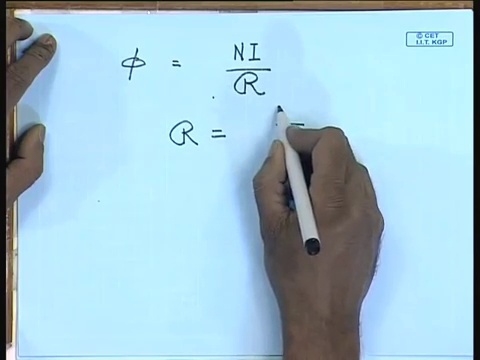 © CET
I.I.T. KGP
ϕ = NI / R
R =